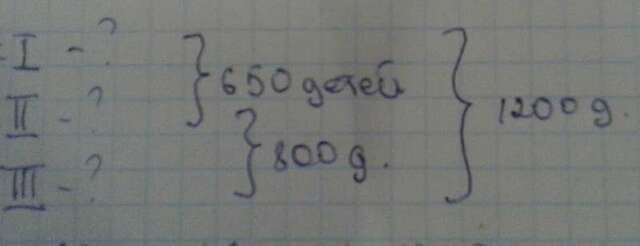 I - ?
} 650 детей
} 1200 д.
II - ?
} 800 д.
III - ?